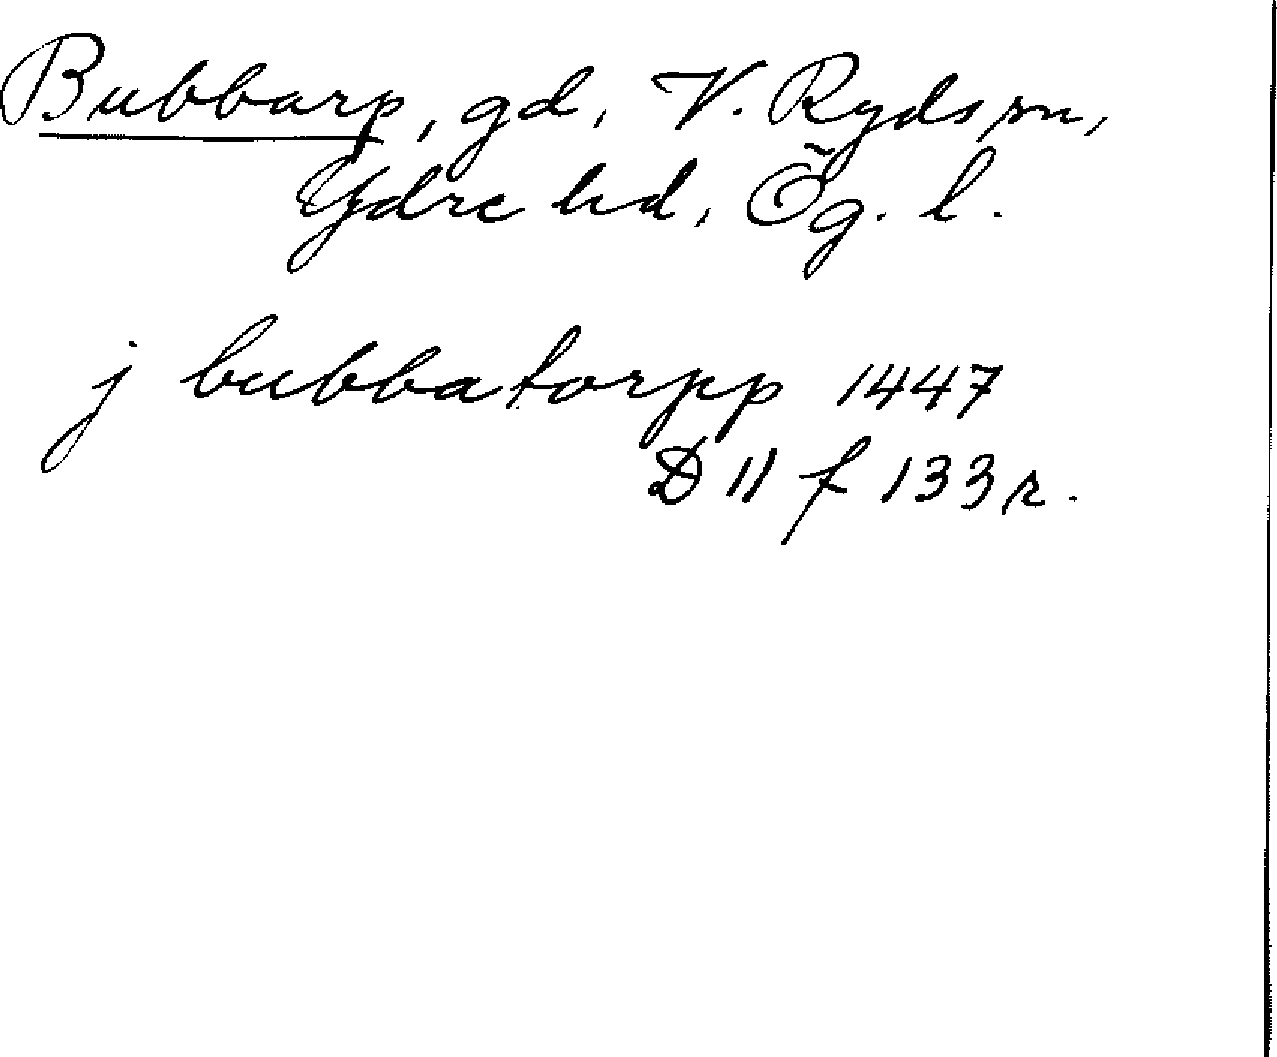 Bubbarp, gd, V. Ryds sn,
Ydre hd, Ög. l.
j bubbatorpp 1447
D 11 f 133r.